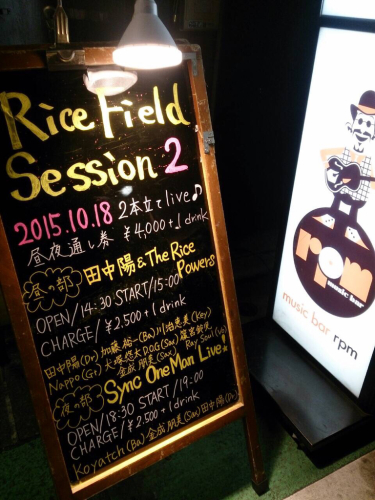 Rice Field
Session 2
2015.10.18 2本立てlive♪
昼夜通し券 ¥4,000+1drink
昼の部 田中陽&The Rice
Powers
OPEN/14:30 START/15:00
CHARGE/¥2,500+1drink
田中陽(Dr)加藤裕一(Ba)川治恵美(Key)
Noppo(Gt)大塚悠太DOG(Sax)
金成朋美(Sax) Ray Soul(Vo)
夜の部 Sync OneMan Live!
OPEN/18:30 START/19:00
CHARGE/¥2,500+1drink
Koyatch(Ba)金成朋美(Sax)田中陽(Dr)
rpm
music bar
music bar rpm